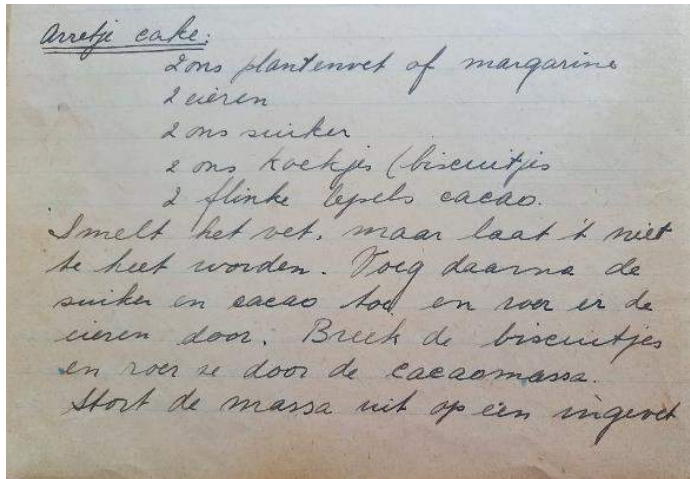 Arretje cake:
2 ons plantenvet of margarine
2 eieren
2 ons suiker
2 ons koekjes (biscuitjes
2 flinke lepels cacao.
Smelt het vet, maar laat 't niet
te heet worden. Voeg daarna de
suiker en cacao toe en roer er de
eieren door. Breek de biscuitjes
en roer ze door de cacaomassa.
Stort de massa uit op een ingevet